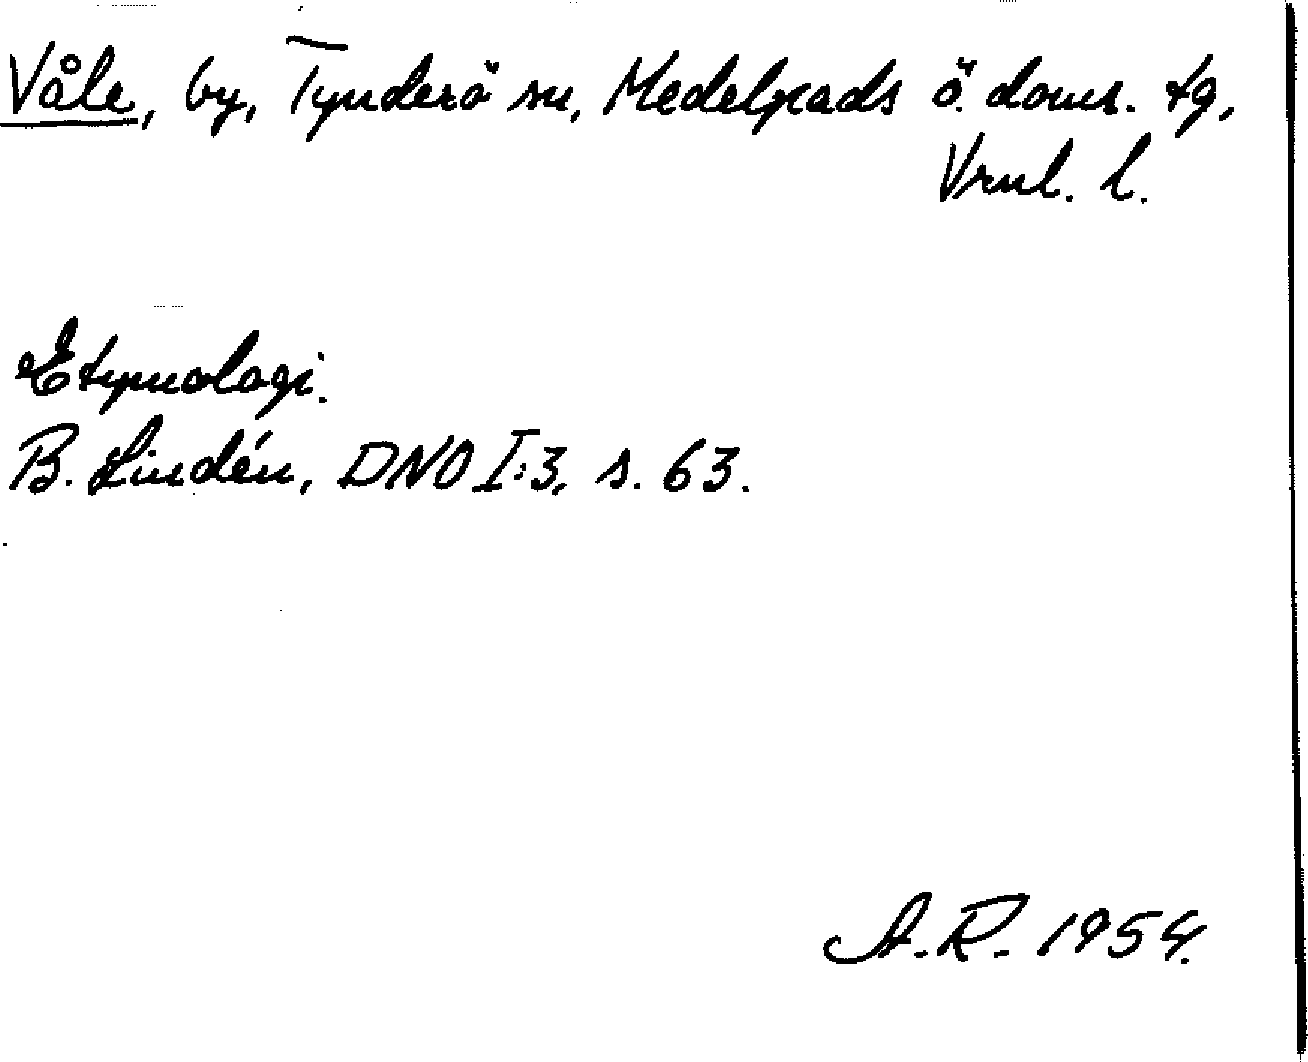 Våle, by, Tynderö sn, Medelpads ö. doms. tg,
Vrnl. l.
Etymologi.
B. Lindén, DNO I:3, s. 63.
A.R. 1954.